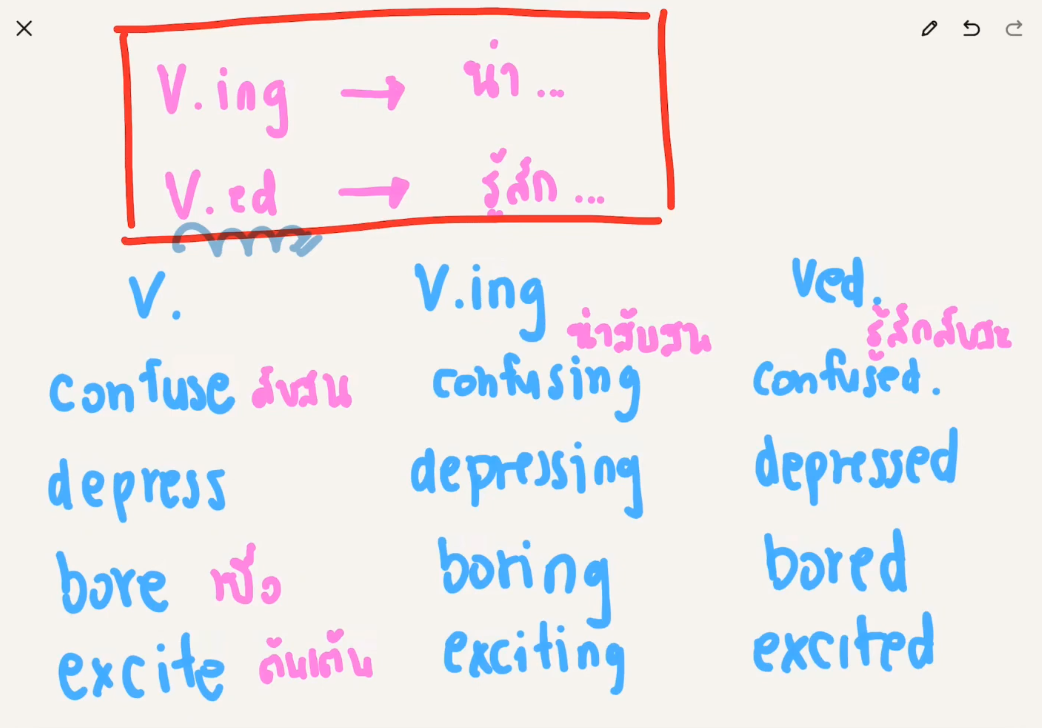 V.ing → น่า...
V.ed → รู้สึก...
V. V.ing Ved.
น่าสับสน รู้สึกสับสน
confuse สับสน confusing confused.
depress depressing depressed
bore เบื่อ boring bored
excite ตื่นเต้น exciting excited